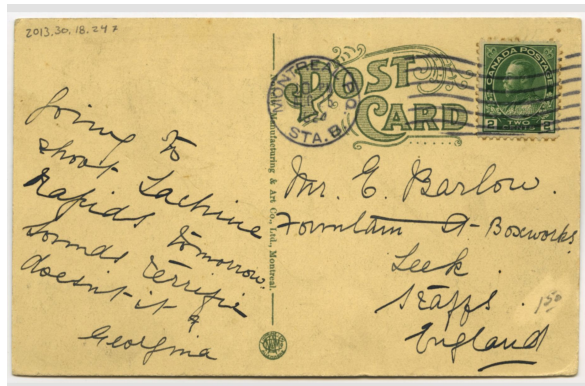 2013.30.18.24
Going to
shoot Lachine
Rapids tomorrow.
Sounds terrific
doesnt it?
Georgina
Manufacturing & Art Co., Ltd., Montreal.
POST
CARD
MONTREAL
STA. B.
CANADA POSTAGE
2 TWO CENTS 2
Mr. E. Barlow.
Fountain St Boxworks
Leek.
Staffs.
England
150